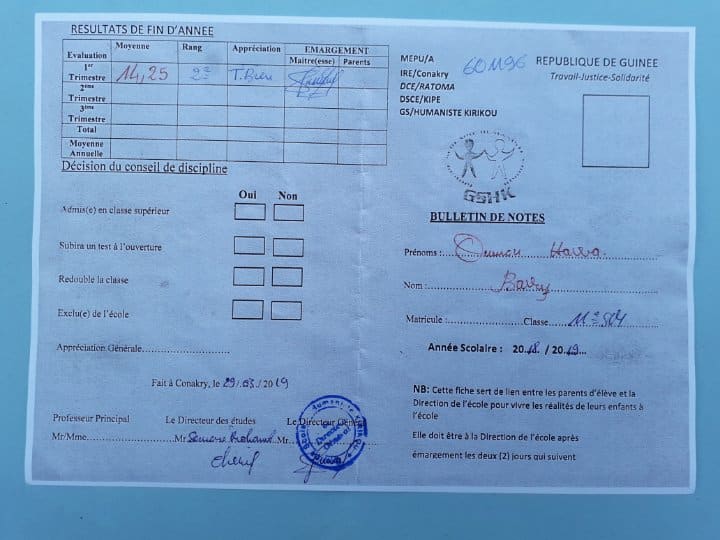 RESULTATS DE FIN D'ANNEE
Evaluation Moyenne Rang Appréciation EMARGEMENT
Maitre(esse) Parents
1er Trimestre 14,25 2e T.Bien
2ème Trimestre
3ème Trimestre
Total
Moyenne Annuelle
Décision du conseil de discipline
Oui Non
Admis(e) en classe supérieur
Subira un test à l'ouverture
Redouble la classe
Exclu(e) de l'école
Appréciation Générale
Fait à Conakry, le 29/03/2019
Professeur Principal Le Directeur des études Le Directeur Général
Mr/Mme Mr Mr
MEPU/A
IRE/Conakry
DCE/RATOMA
DSCE/KIPE
GS/HUMANISTE KIRIKOU
601196
REPUBLIQUE DE GUINEE
Travail-Justice-Solidarité
GSHK
BULLETIN DE NOTES
Prénoms : Oumou Hawa
Nom : Barry
Matricule : Classe 11e
Année Scolaire : 2018/2019
NB: Cette fiche sert de lien entre les parents d'élève et la
Direction de l'école pour vivre les réalités de leurs enfants à
l'école
Elle doit être à la Direction de l'école après
émargement les deux (2) jours qui suivent